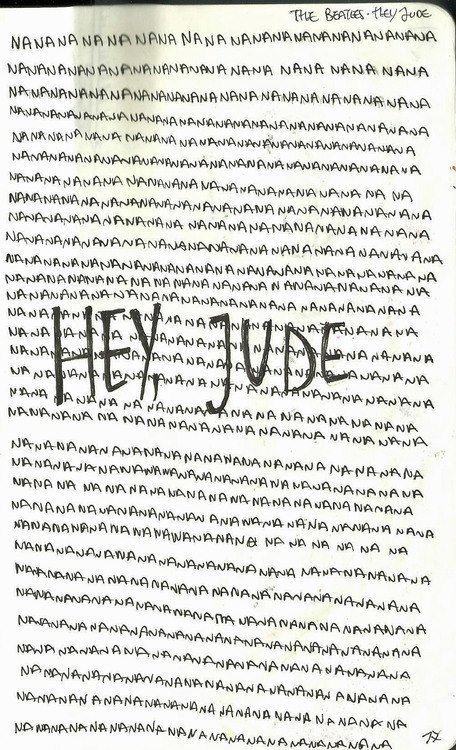 THE BEATLES · HEY JUDE
NANANA NANANA NANA NANA NANANANANANANANANANA
NANANANANANANANANANANANA NANA NANA NANA NANA
NANANANANANANANANANANANANANANANANANANANANANA
NANANANANANANANANANANANANANANANANANANANANANA
NANANANANANA NANANANANANANANANANANANANANANA
NANANANANANANANANANANANANANANANANANANANANANA
NANANANANANA NANANANANANANANANANANANANA NA NA
NANANANANANANANANANANANANANANANANANANANANANA
NANANANANANANANANANA NANANANANANANANANANANANA
NANANANANANANANANANANANANANANANANANANANANANANA
NANANANANANANANANANANANANANANANANANANANANANA
NANANANANANANANANA NANANANANANANANANANANANANA NA
NANANANANANANANANANANANANANANANANANANANANANA
HEY, JUDE
NANANANA NA NANANANANANANANANANANANANANANANA
NANANANANANANANANANANANANANANANANANANANANANA
NANANANANANANANANANANANANANANANANANA NANANANA
NANA NA NANANANANANANANANANANANANANANANANANA
NANANANANANANANANANANANANANANANANANANANANANA
NANANANANANANANANANANANA NA NA NA NA NA NA
NANANANANANANANANANANANANANA NANA NANANANANANA
NANANANANANANANANANANANANANANANANANANANANANA
NANANANANANANANANANANANANANANANANANANANANANA
NANANANANANANANANANANANANANANANANANANANANANA
NANANANANANANANANANANANANANANANANANANANANA
NANANANANANANANANANANANANANANANANANANANANA
NANANANANANANANANANANANANANANANANANANANA NA
NANANANANANANANANANANANANANANANANANANANA
17